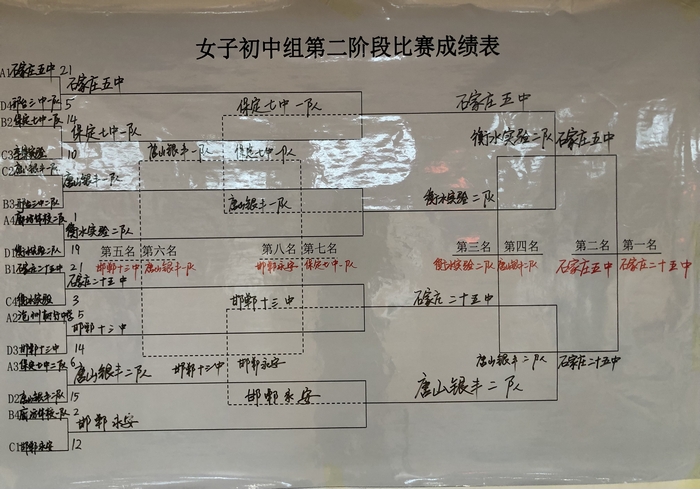 女子初中组第二阶段比赛成绩表
A1 石家庄五中 21
石家庄五中
D4 邢台三中一队 5
保定七中一队
石家庄五中
B2 保定七中一队 14
保定七中一队
衡水实验二队
石家庄五中
C3 10
唐山银丰一队
保定七中一队
C2 唐山银丰一队
唐山银丰一队
B3 邢台三中二队
唐山银丰一队
衡水实验二队
A4 1
衡水实验二队
D1 衡水实验二队 19
第五名 第六名 第八名 第七名 第三名 第四名 第二名 第一名
邯郸十三中 唐山银丰一队 邯郸永安 保定七中一队 衡水实验二队 唐山银丰二队 石家庄五中 石家庄二十五中
B1 石家庄二十五中 21
石家庄二十五中
C4 衡水实验 3
邯郸十三中
石家庄二十五中
A2 5
邯郸十三中
D3 邯郸十三中 14
A3 保定七中二队 6
唐山银丰二队
邯郸十三中
邯郸永安
唐山银丰二队
石家庄二十五中
D2 唐山银丰二队 15
邯郸永安
唐山银丰二队
B4 2
邯郸永安
C1 邯郸永安 12